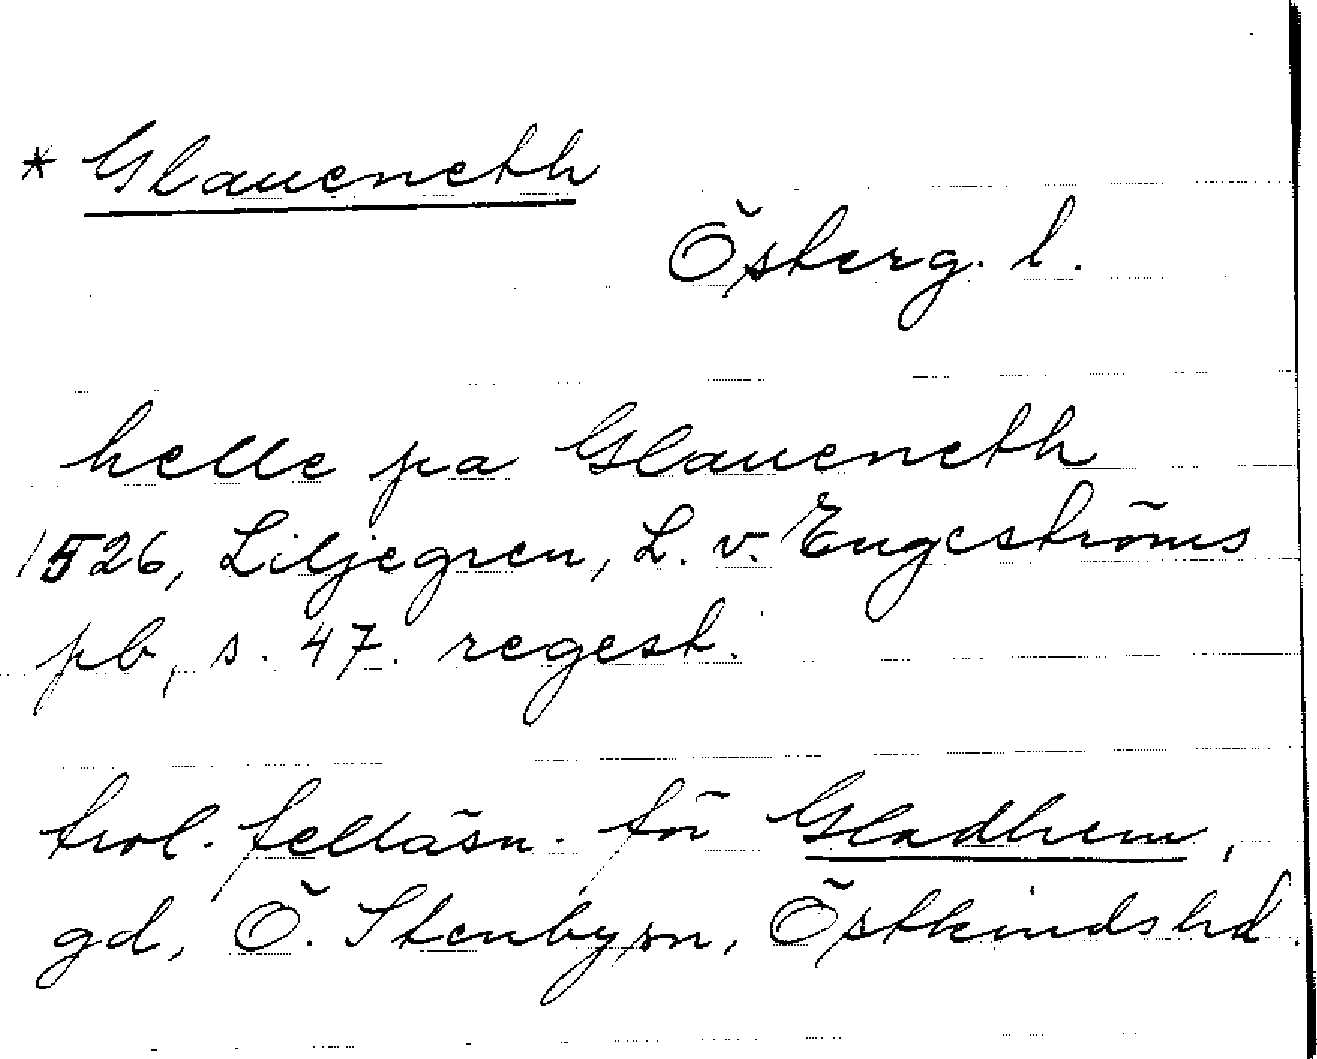 * Glaueneth
Österg. l.
helle pa Glaueneth
1526, Liljegren, L. v. Engeströms
pb, s. 47. regest.
trol. felläsn. för Gladhem,
gd, Ö. Stenby sn, Östkinds hd.